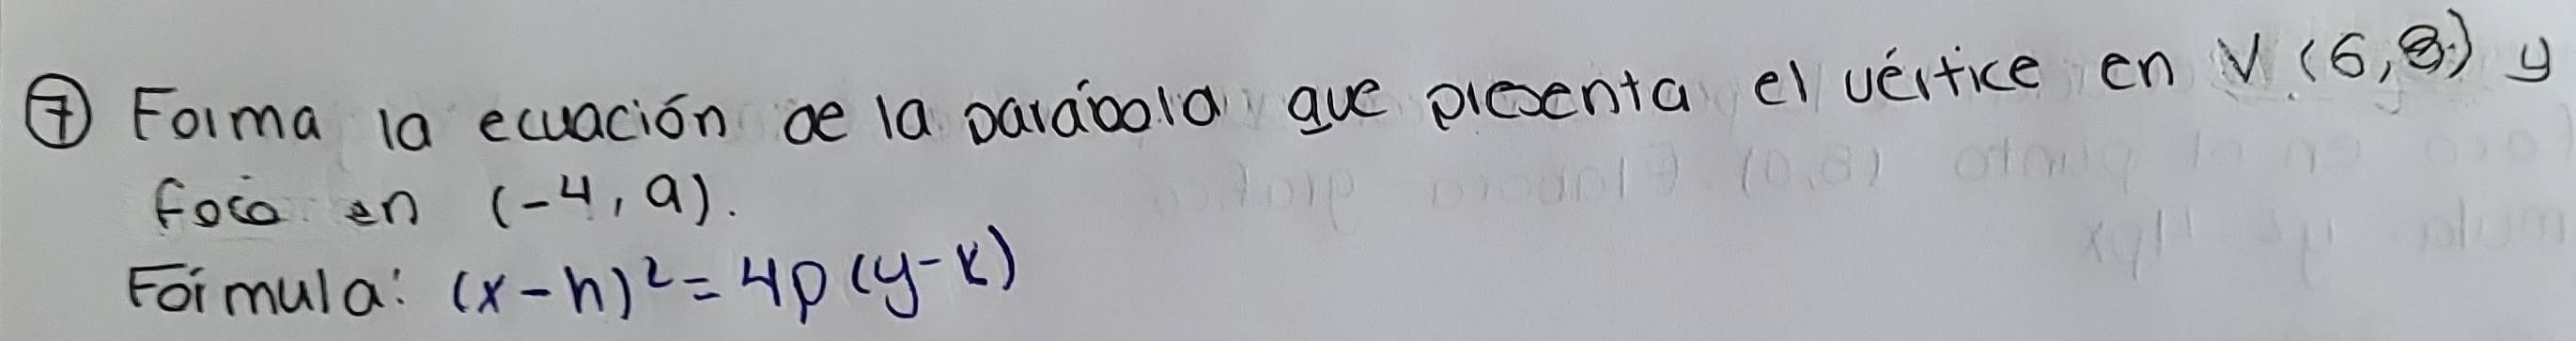 ⑦ Forma la ecuación de la parábola que presenta el vértice en V (6,8) y
foco en (-4, 9).
Fórmula: (x-h)²=4p(y-k)